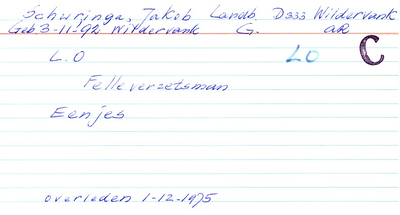 Schuringa, Jakob Landb. D333 Wildervank
Geb 3-11-92 Wildervank G. AR
L.O LO C
Felle verzetsman
Eenjes
overleden 1-12-1975